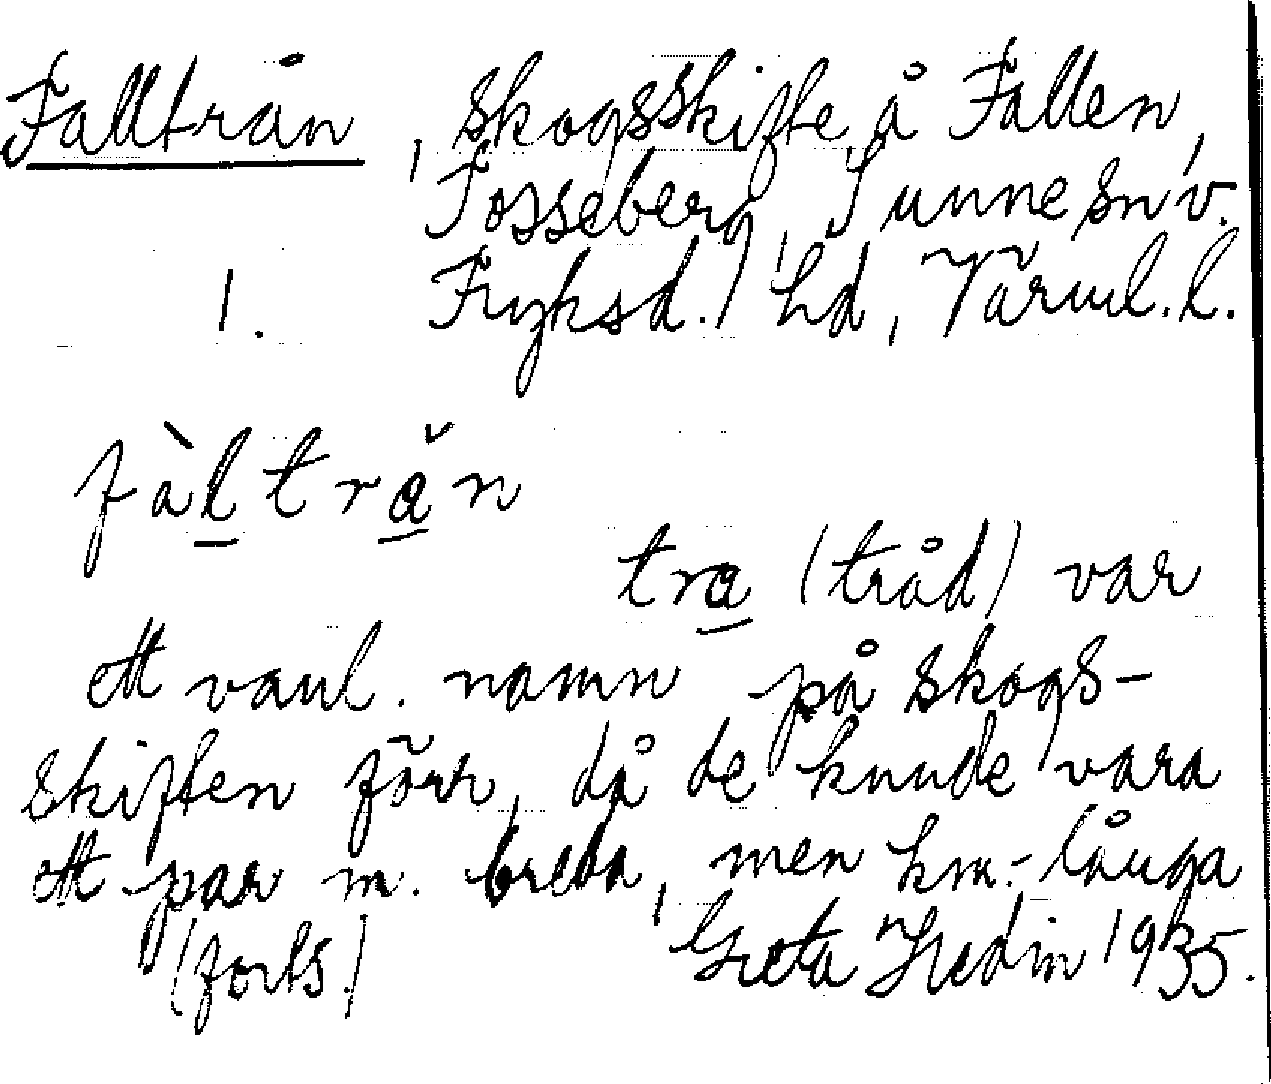 Falltrån, skogsskifte å Fallen,
Fosseberg, Sunne sn, v.
1. Fryksd. hd, Värml. l.
fàltrån
tra (tråd) var
ett vanl. namn på skogs-
skiften förr, då de kunde vara
ett par m. breda, men km.-långa
(forts) Greta Hedin 1935.